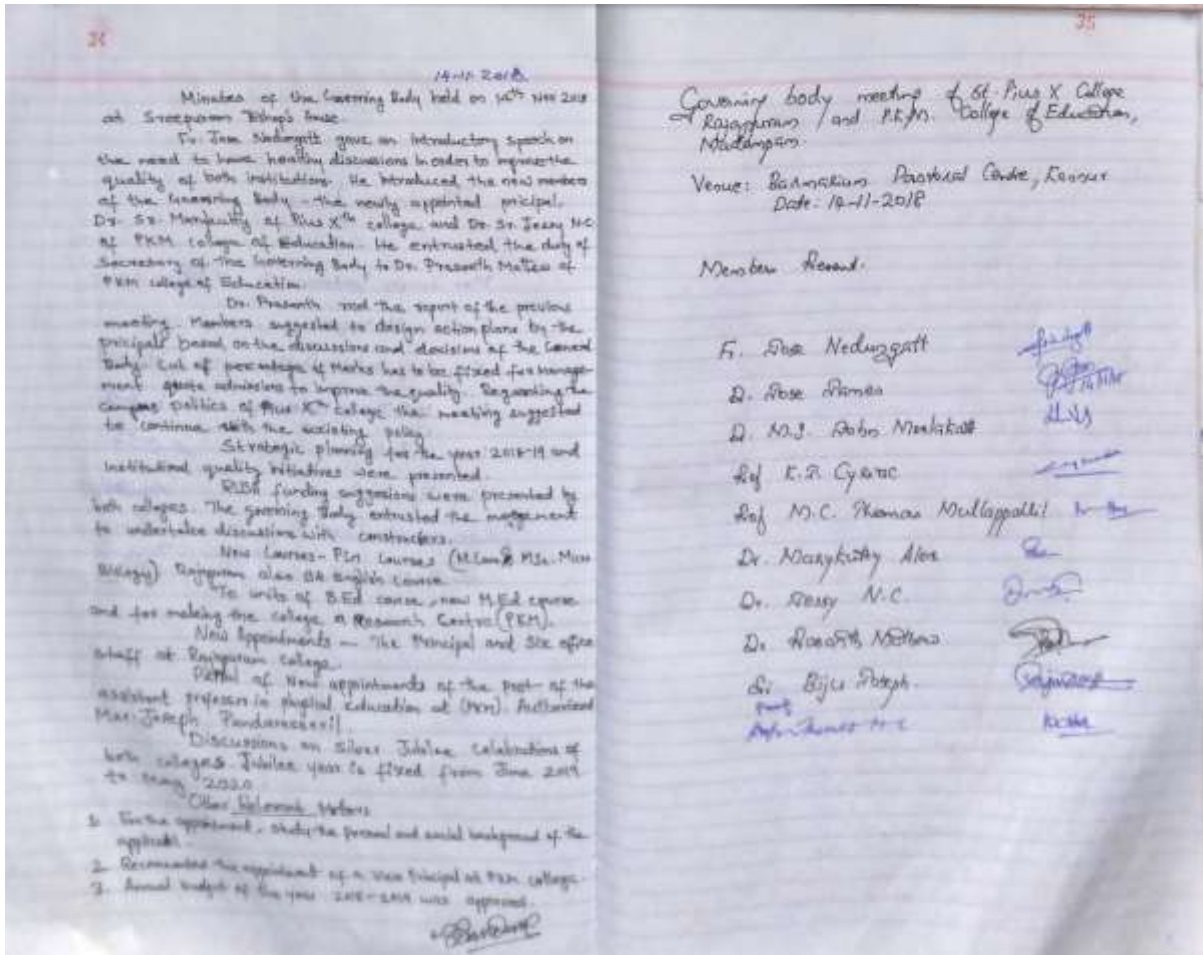 34
14-11-2018
Minutes of the Governing Body held on 14th Nov 2018
at Sreepuram Bishop's house
Fr. Jose Nedungatt gave an introductory speech on
the need to have healthy discussions in order to improve the
quality of both institutions. He introduced the new members
of the Governing Body - the newly appointed pricipal.
Dr. Sr. Marykutty of Pius Xth college and Dr. Sr. Jessy N.C
of PKM college of Education. He entrusted the duty of
Secretary of the Governing Body to Dr. Prasanth Mathew of
PKM college of Education.
Dr. Prasanth read the report of the previous
meeting. Members suggested to design action plans by the
principals based on the discussions and decisions of the General
Body. Cut of percentage of Marks has to be fixed for manage-
ment quota admissions to improve the quality. Regarding the
campus politics of Pius Xth college the meeting suggested
to continue with the existing policy.
Strategic planning for the year 2018-19 and
institutional quality initiatives were presented.
RUSA funding suggestions were presented by
both colleges. The governing Body entrusted the
to undertake discussions with
New Courses - Courses (M.Com & MSc. Micro
Biology) Rajapuram also BA English course
To units of B.Ed course, new M.Ed course
and for making the college a Research Centre (PKM).
New Appointments — The Principal and Six office
staff at Rajapuram college.
Detail of New appointments of the post of the
assistant professor in physical Education at (PKM). Authorized
Mar. Joseph Pandarasseril
Discussions on Silver Jubilee Celebrations of
both colleges. Jubilee year is fixed from June 2019
to May 2020
Other Relevant Matters
1. For the appointment, study the personal and social background of the
applicant.
2. Recommended the appointment of a Vice Principal at PKM college
3. Annual budget of the year 2018-2019 was approved.
35
Governing body meeting of St. Pius X College
Rajapuram and P.K.M. College of Education,
Madampam.
Venue: Barmariam Pastoral Centre, Kannur
Date: 14-11-2018
Members Present.
Fr. Jose Nedungatt
D. Jose James
D. M.J. John Mealakatt
Prof K.P. Cyriac
Prof M.C. Thomas Mullappallil
Dr. Marykutty Alex
Dr. Jessy N.C.
Dr. Prasanth Mathew
Sri Biju Joseph.